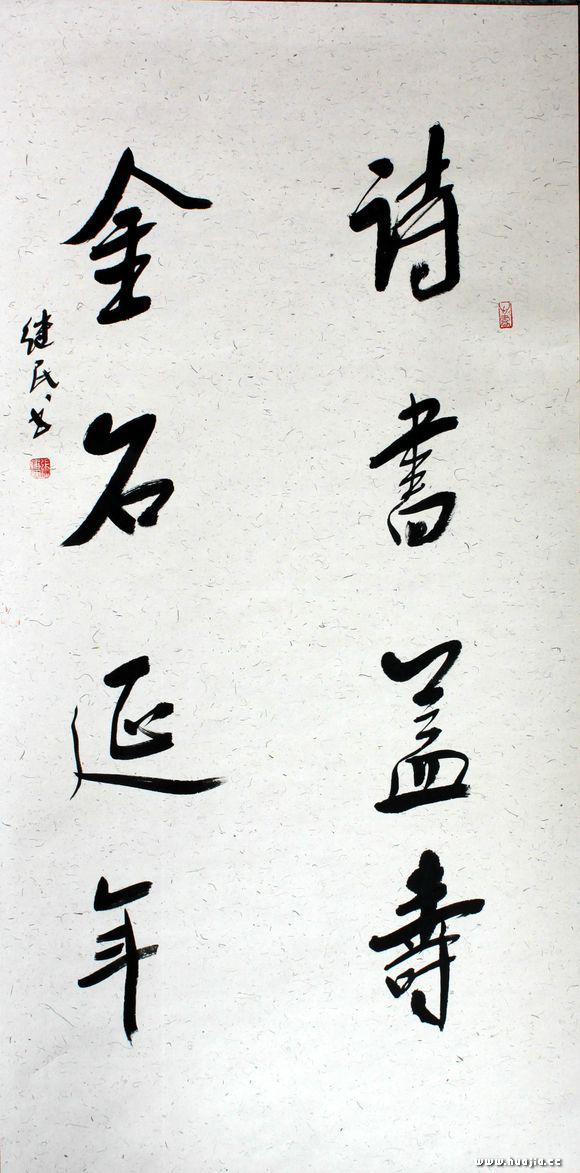 诗書益壽
金石延年
继民书
www.huajia.cc